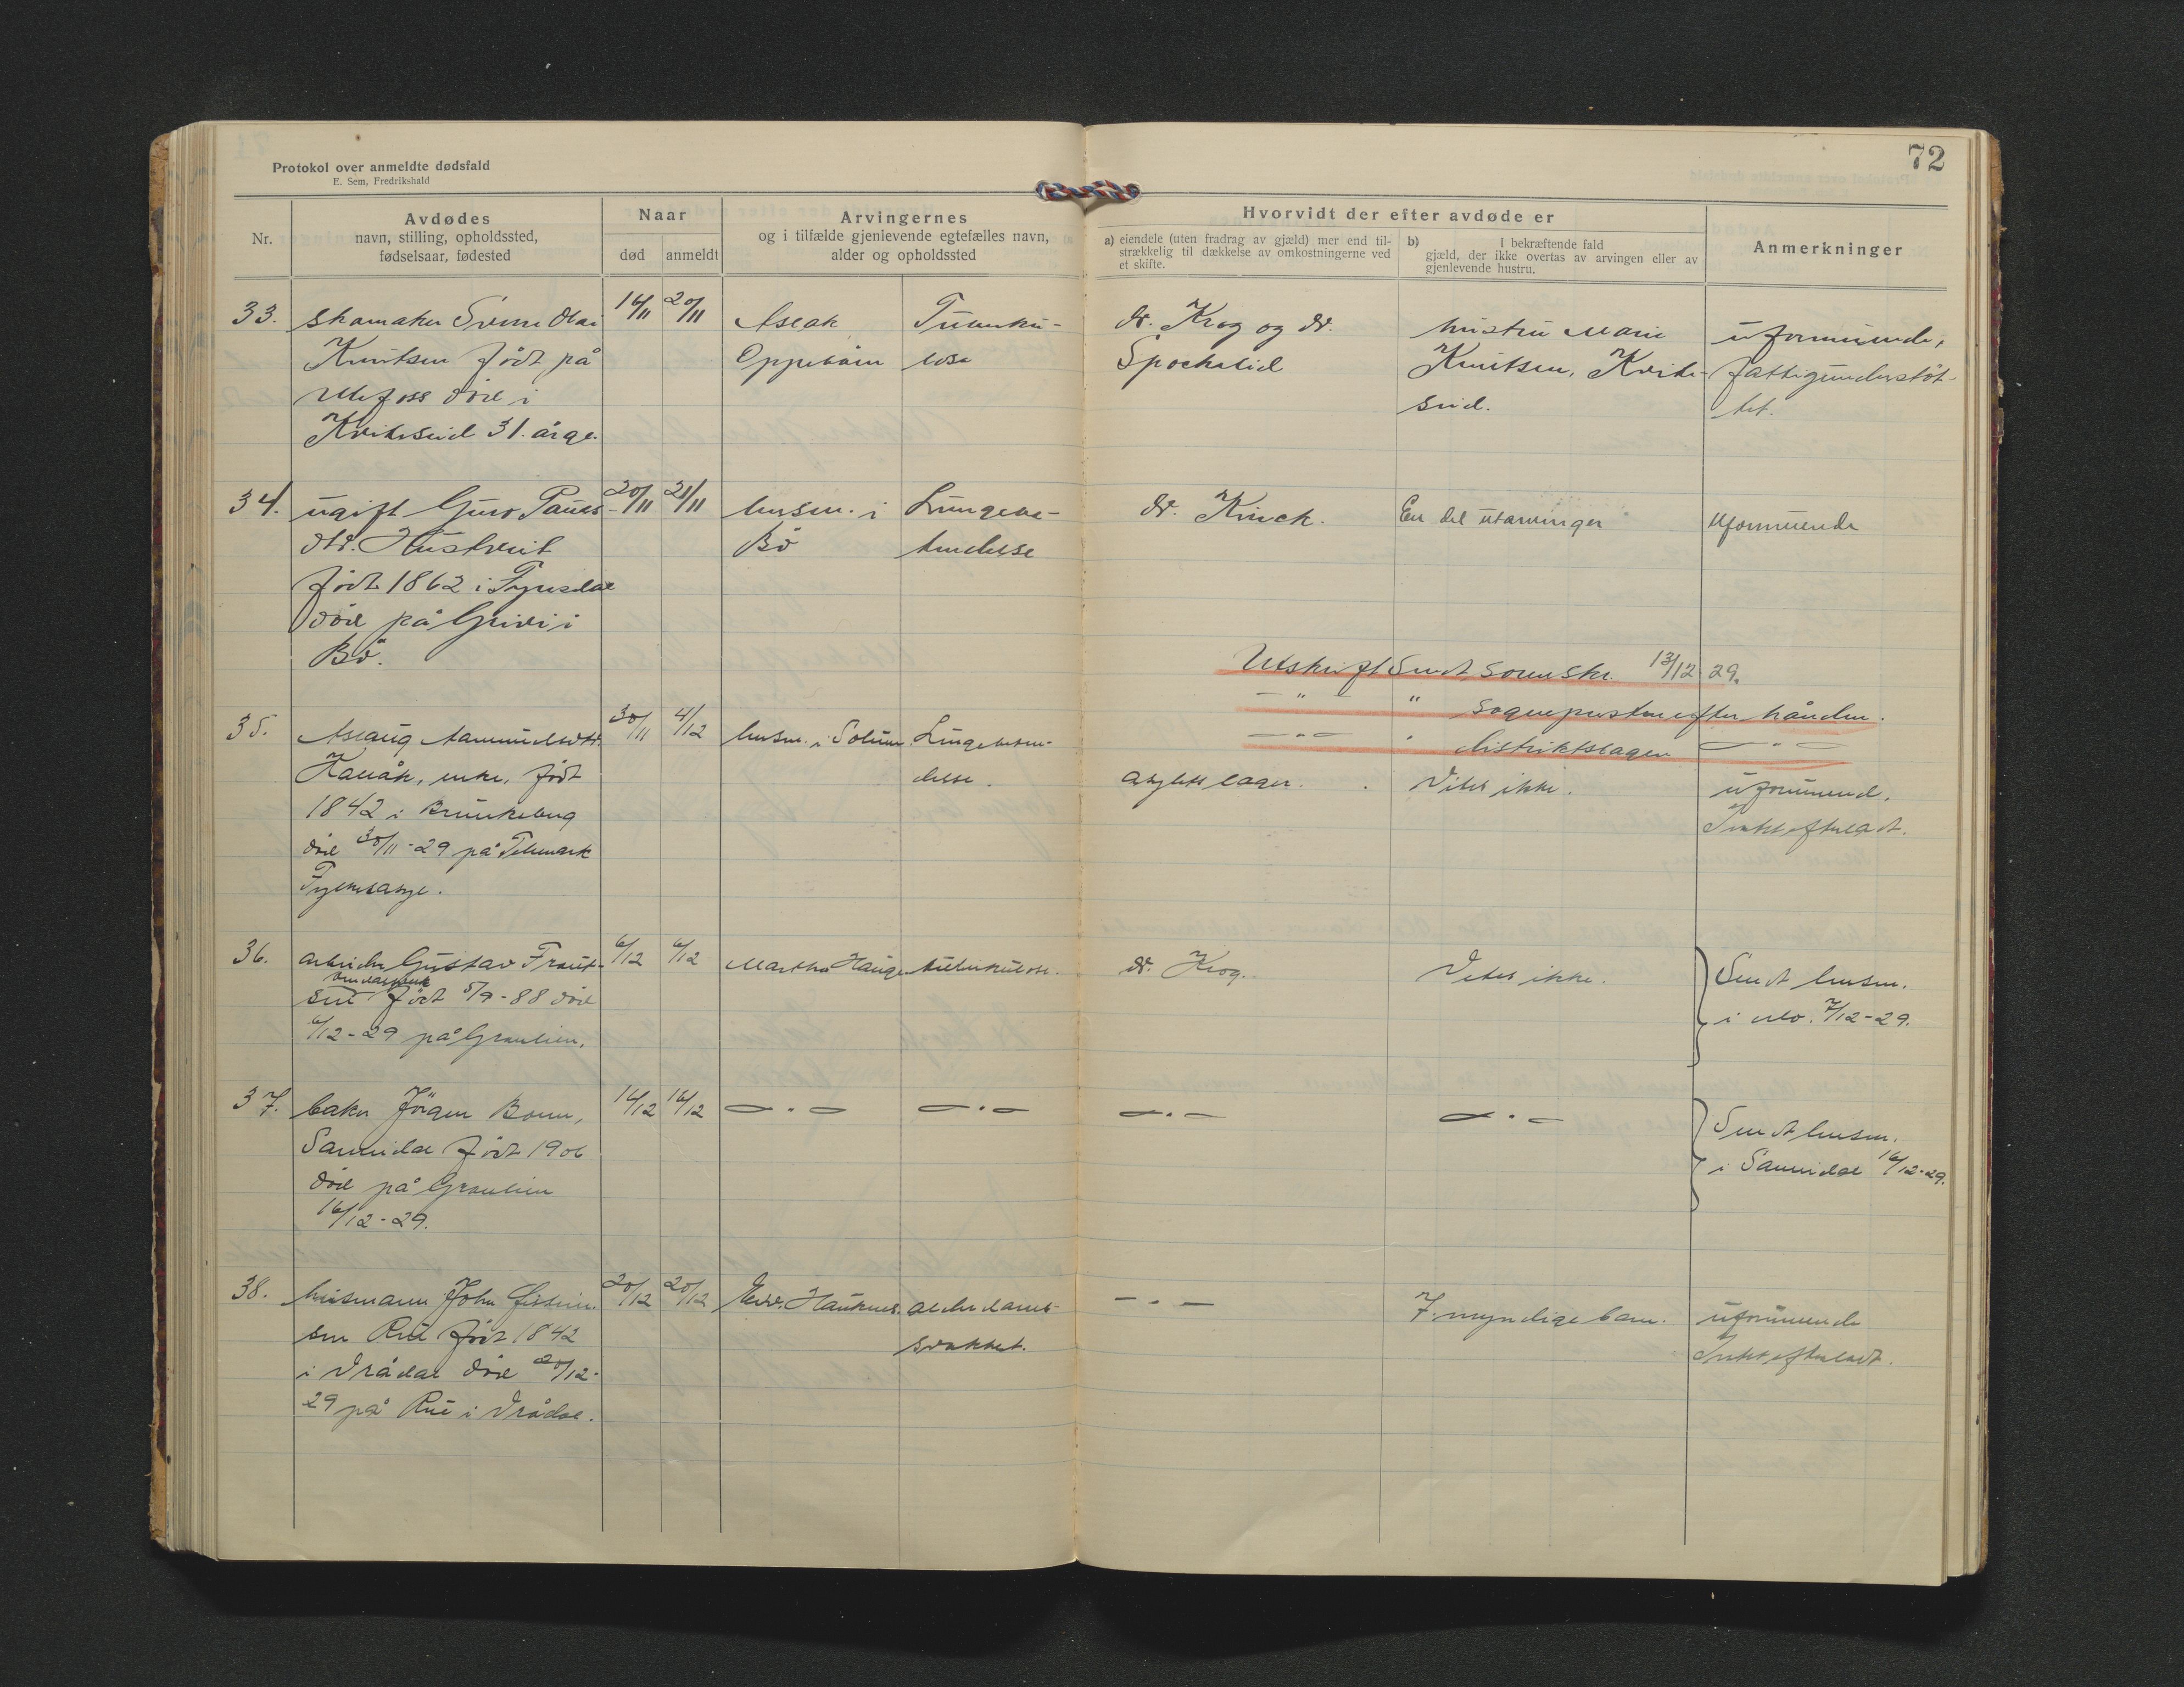 72
Protokol over anmeldte dødsfald
E. Sem, Fredrikshald
Nr.
Avdødes
navn, stilling, opholdssted,
fødselsaar, fødested
Naar
død
anmeldt
Arvingernes
og i tilfælde gjenlevende egtefælles navn,
alder og opholdssted
Hvorvidt der efter avdøde er
a) eiendele (uten fradrag av gjæld) mer end til-
strækkelig til dækkelse av omkostningerne ved
et skifte.
b) I bekræftende fald
gjæld, der ikke overtas av arvingen eller av
gjenlevende hustru.
Anmerkninger
33.
skomaker Olai
Knutsen født på
Ulefoss död i
Kviteseid 31. år gl.
16/11
20/11
Aslak
Oppebøen
Tuberku-
lose
dr. Krog og dr.
hustru Marie
Knutsen, Kvite-
seid.
uformuende,
fattigunderstöt-
tet.
34.
ugift Guro Paals-
dtr. Hustveit
födt 1862 i Fyresdal
död på i
Bö.
20/11
21/11
lensm. i
Bö
Lungebe-
tendelse
dr. Kinck.
En del utarvinger
uformuende
Utskrift sendt sorenskr. 13/12 29.
— " — " sogneprestene efter hånden.
— " — " distriktslagen — " —
35.
Aslaug Aamundsdtr.
enke, födt
1842 i Brunkeberg
död 30/11-29 på Telemark
Fylkesasyl.
30/11
4/12
lensm. i Solum
Lungebeten-
delse.
asylets læger.
Vites ikke.
uformuend.
Intet efterladt.
36.
arbeider Gustav
sen födt 5/9-88 död
6/12-29 på Granlien.
6/12
6/12
Martha Hauge
tuberkulose.
dr. Krog.
Vites ikke.
Sendt lensm.
i 7/12-29.
37.
baker Jörgen
Sannidal födt 1906
död på Granlien
16/12-29.
16/12
16/12
— " —
— " —
— " —
— " —
Sendt lensm.
i Sannidal 16/12-29.
38.
husmann John Gisten-
sen Rui födt 1842
i Vrådal död 20/12-
29 på Rui i Vrådal.
20/12
20/12
Edv. Hauknes.
alderdoms-
svakhet.
— " —
7 myndige barn.
uformuende
Intet efterladt.